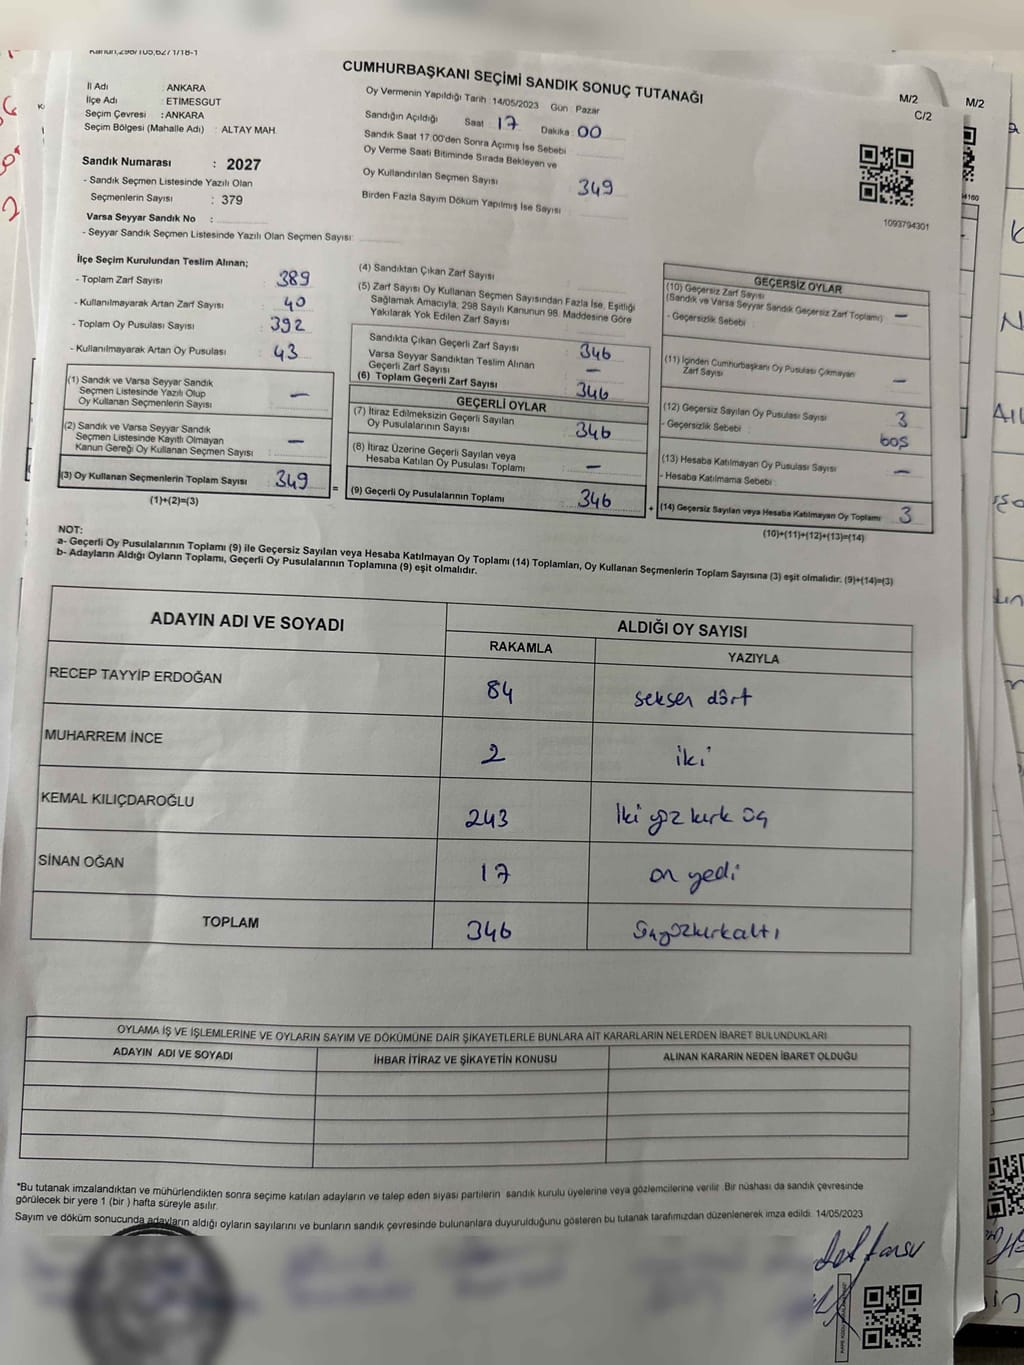 Kanun,298/105,6271/18-1
CUMHURBAŞKANI SEÇİMİ SANDIK SONUÇ TUTANAĞI
M/2
C/2
M/2
İl Adı : ANKARA
İlçe Adı : ETİMESGUT
Seçim Çevresi : ANKARA
Seçim Bölgesi (Mahalle Adı) : ALTAY MAH.
Oy Vermenin Yapıldığı Tarih : 14/05/2023 Gün : Pazar
Sandığın Açıldığı Saat : 17 Dakika : 00
Sandık Saat 17:00'den Sonra Açılmış İse Sebebi
Oy Verme Saati Bitiminde Sırada Bekleyen ve
Oy Kullandırılan Seçmen Sayısı : 349
Birden Fazla Sayım Döküm Yapılmış İse Sayısı
1093794301
Sandık Numarası : 2027
- Sandık Seçmen Listesinde Yazılı Olan
Seçmenlerin Sayısı : 379
Varsa Seyyar Sandık No :
- Seyyar Sandık Seçmen Listesinde Yazılı Olan Seçmen Sayısı:
İlçe Seçim Kurulundan Teslim Alınan;
- Toplam Zarf Sayısı : 389
- Kullanılmayarak Artan Zarf Sayısı : 40
- Toplam Oy Pusulası Sayısı : 392
- Kullanılmayarak Artan Oy Pusulası : 43
(1) Sandık ve Varsa Seyyar Sandık
Seçmen Listesinde Yazılı Olup
Oy Kullanan Seçmenlerin Sayısı : —
(2) Sandık ve Varsa Seyyar Sandık
Seçmen Listesinde Kayıtlı Olmayan
Kanun Gereği Oy Kullanan Seçmen Sayısı : —
(3) Oy Kullanan Seçmenlerin Toplam Sayısı : 349
(1)+(2)=(3)
(4) Sandıktan Çıkan Zarf Sayısı
(5) Zarf Sayısı Oy Kullanan Seçmen Sayısından Fazla İse, Eşitliği
Sağlamak Amacıyla, 298 Sayılı Kanunun 98. Maddesine Göre
Yakılarak Yok Edilen Zarf Sayısı
Sandıkta Çıkan Geçerli Zarf Sayısı : 346
Varsa Seyyar Sandıktan Teslim Alınan
Geçerli Zarf Sayısı : —
(6) Toplam Geçerli Zarf Sayısı : 346
GEÇERLİ OYLAR
(7) İtiraz Edilmeksizin Geçerli Sayılan
Oy Pusulalarının Sayısı : 346
(8) İtiraz Üzerine Geçerli Sayılan veya
Hesaba Katılan Oy Pusulası Toplamı : —
= (9) Geçerli Oy Pusulalarının Toplamı : 346
GEÇERSİZ OYLAR
(10) Geçersiz Zarf Sayısı
(Sandık ve Varsa Seyyar Sandık Geçersiz Zarf Toplamı) : —
- Geçersizlik Sebebi :
(11) İçinden Cumhurbaşkanı Oy Pusulası Çıkmayan
Zarf Sayısı : —
(12) Geçersiz Sayılan Oy Pusulası Sayısı : 3
- Geçersizlik Sebebi : boş
(13) Hesaba Katılmayan Oy Pusulası Sayısı : —
- Hesaba Katılmama Sebebi :
+ (14) Geçersiz Sayılan veya Hesaba Katılmayan Oy Toplamı : 3
(10)+(11)+(12)+(13)=(14)
NOT:
a- Geçerli Oy Pusulalarının Toplamı (9) ile Geçersiz Sayılan veya Hesaba Katılmayan Oy Toplamı (14) Toplamları, Oy Kullanan Seçmenlerin Toplam Sayısına (3) eşit olmalıdır. (9)+(14)=(3)
b- Adayların Aldığı Oyların Toplamı, Geçerli Oy Pusulalarının Toplamına (9) eşit olmalıdır.
ADAYIN ADI VE SOYADI
ALDIĞI OY SAYISI
RAKAMLA YAZIYLA
RECEP TAYYİP ERDOĞAN 84 seksen dört
MUHARREM İNCE 2 iki
KEMAL KILIÇDAROĞLU 243 İki yüz kırk üç
SİNAN OĞAN 17 on yedi
TOPLAM 346 üçyüzkırkaltı
OYLAMA İŞ VE İŞLEMLERİNE VE OYLARIN SAYIM VE DÖKÜMÜNE DAİR ŞİKAYETLERLE BUNLARA AİT KARARLARIN NELERDEN İBARET BULUNDUKLARI
ADAYIN ADI VE SOYADI İHBAR İTİRAZ VE ŞİKAYETİN KONUSU ALINAN KARARIN NEDEN İBARET OLDUĞU
*Bu tutanak imzalandıktan ve mühürlendikten sonra seçime katılan adayların ve talep eden siyasi partilerin sandık kurulu üyelerine veya gözlemcilerine verilir. Bir nüshası da sandık çevresinde
görülecek bir yere 1 (bir) hafta süreyle asılır.
Sayım ve döküm sonucunda adayların aldığı oyların sayılarını ve bunların sandık çevresinde bulunanlara duyurulduğunu gösteren bu tutanak tarafımızdan düzenlenerek imza edildi. 14/05/2023